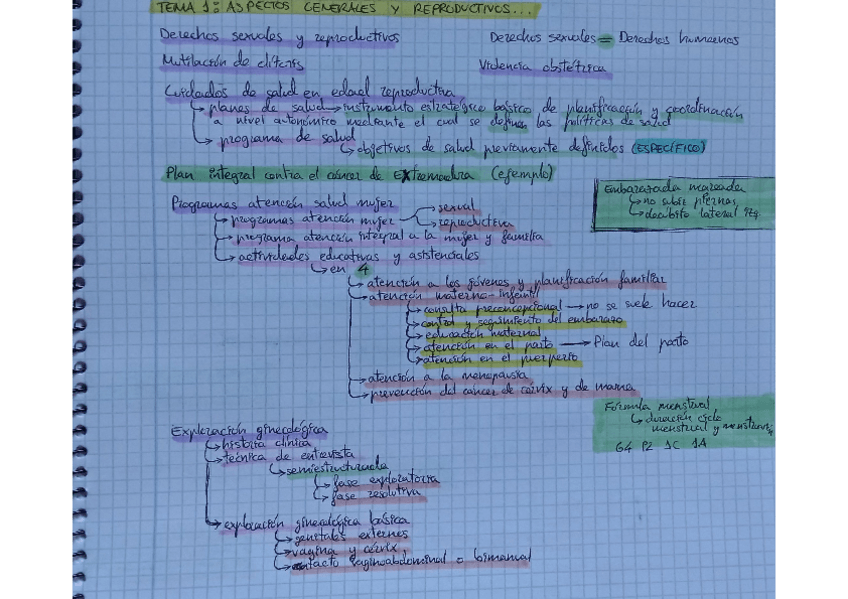 TEMA 1: ASPECTOS GENERALES Y REPRODUCTIVOS...
Derechos sexuales y reproductivos
Derechos sexuales = Derechos humanos
Mutilación de clítoris
Violencia obstétrica
Cuidados de salud en edad reproductiva
↳ planes de salud → instrumento estratégico básico de planificación y coordinación
a nivel autonómico mediante el cual se definen las políticas de salud
↳ programa de salud
↳ objetivos de salud previamente definidos (ESPECÍFICO)
Plan integral contra el cáncer de Extremadura (ejemplo)
Embarazada mareada
↳ no subir piernas
↳ decúbito lateral izq
Programas atención salud mujer
↳ programas atención mujer
sexual
reproductiva
↳ programa atención integral a la mujer y familia
↳ actividades educativas y asistenciales
↳ en 4
↳ atención a los jóvenes y planificación familiar
↳ atención materno-infantil
↳ consulta preconcepcional → no se suele hacer
↳ control y seguimiento del embarazo
↳ educación maternal
↳ atención en el parto → Plan del parto
↳ atención en el puerperio
↳ atención a la menopausia
↳ prevención del cáncer de cérvix y de mama
Fórmula menstrual
↳ duración ciclo
menstrual y menstruación
G4 P2 1C 1A
Exploración ginecológica
↳ historia clínica
↳ técnica de entrevista
↳ semiestructurada
↳ fase exploratoria
↳ fase resolutiva
↳ exploración ginecológica básica
↳ genitales externos
↳ vagina y cérvix
↳ tacto vaginoabdominal o bimanual